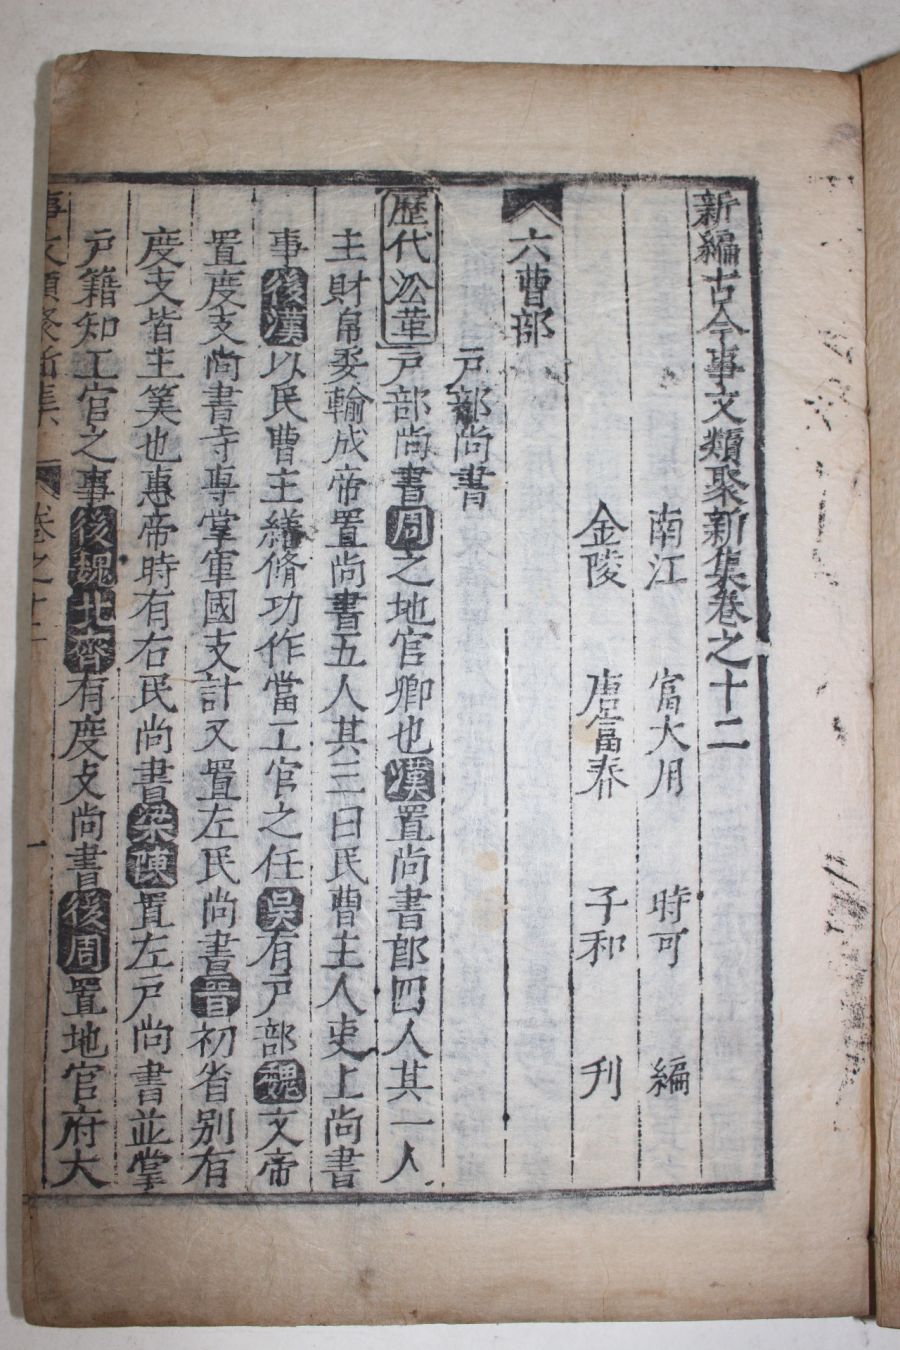 新編古今事文類聚新集卷之十二
南江 富大用 時可 編
金陵 唐富春 子和 刋
六曹部
戶部尚書
歷代沿革戶部尚書周之地官卿也漢置尚書郎四人其一人
主財帛委輸成帝置尚書五人其三曰民曹主人吏上尚書
事後漢以民曹主繕脩功作當工官之任吳有戶部魏文帝
置度支尚書寺專掌軍國支計又置左民尚書晉初省别有
度支皆主筭也惠帝時有右民尚書梁陳置左戶尚書並掌
戶籍知工官之事後魏北齊有度支尚書後周置地官府大
事文類聚新集 卷之十二 一